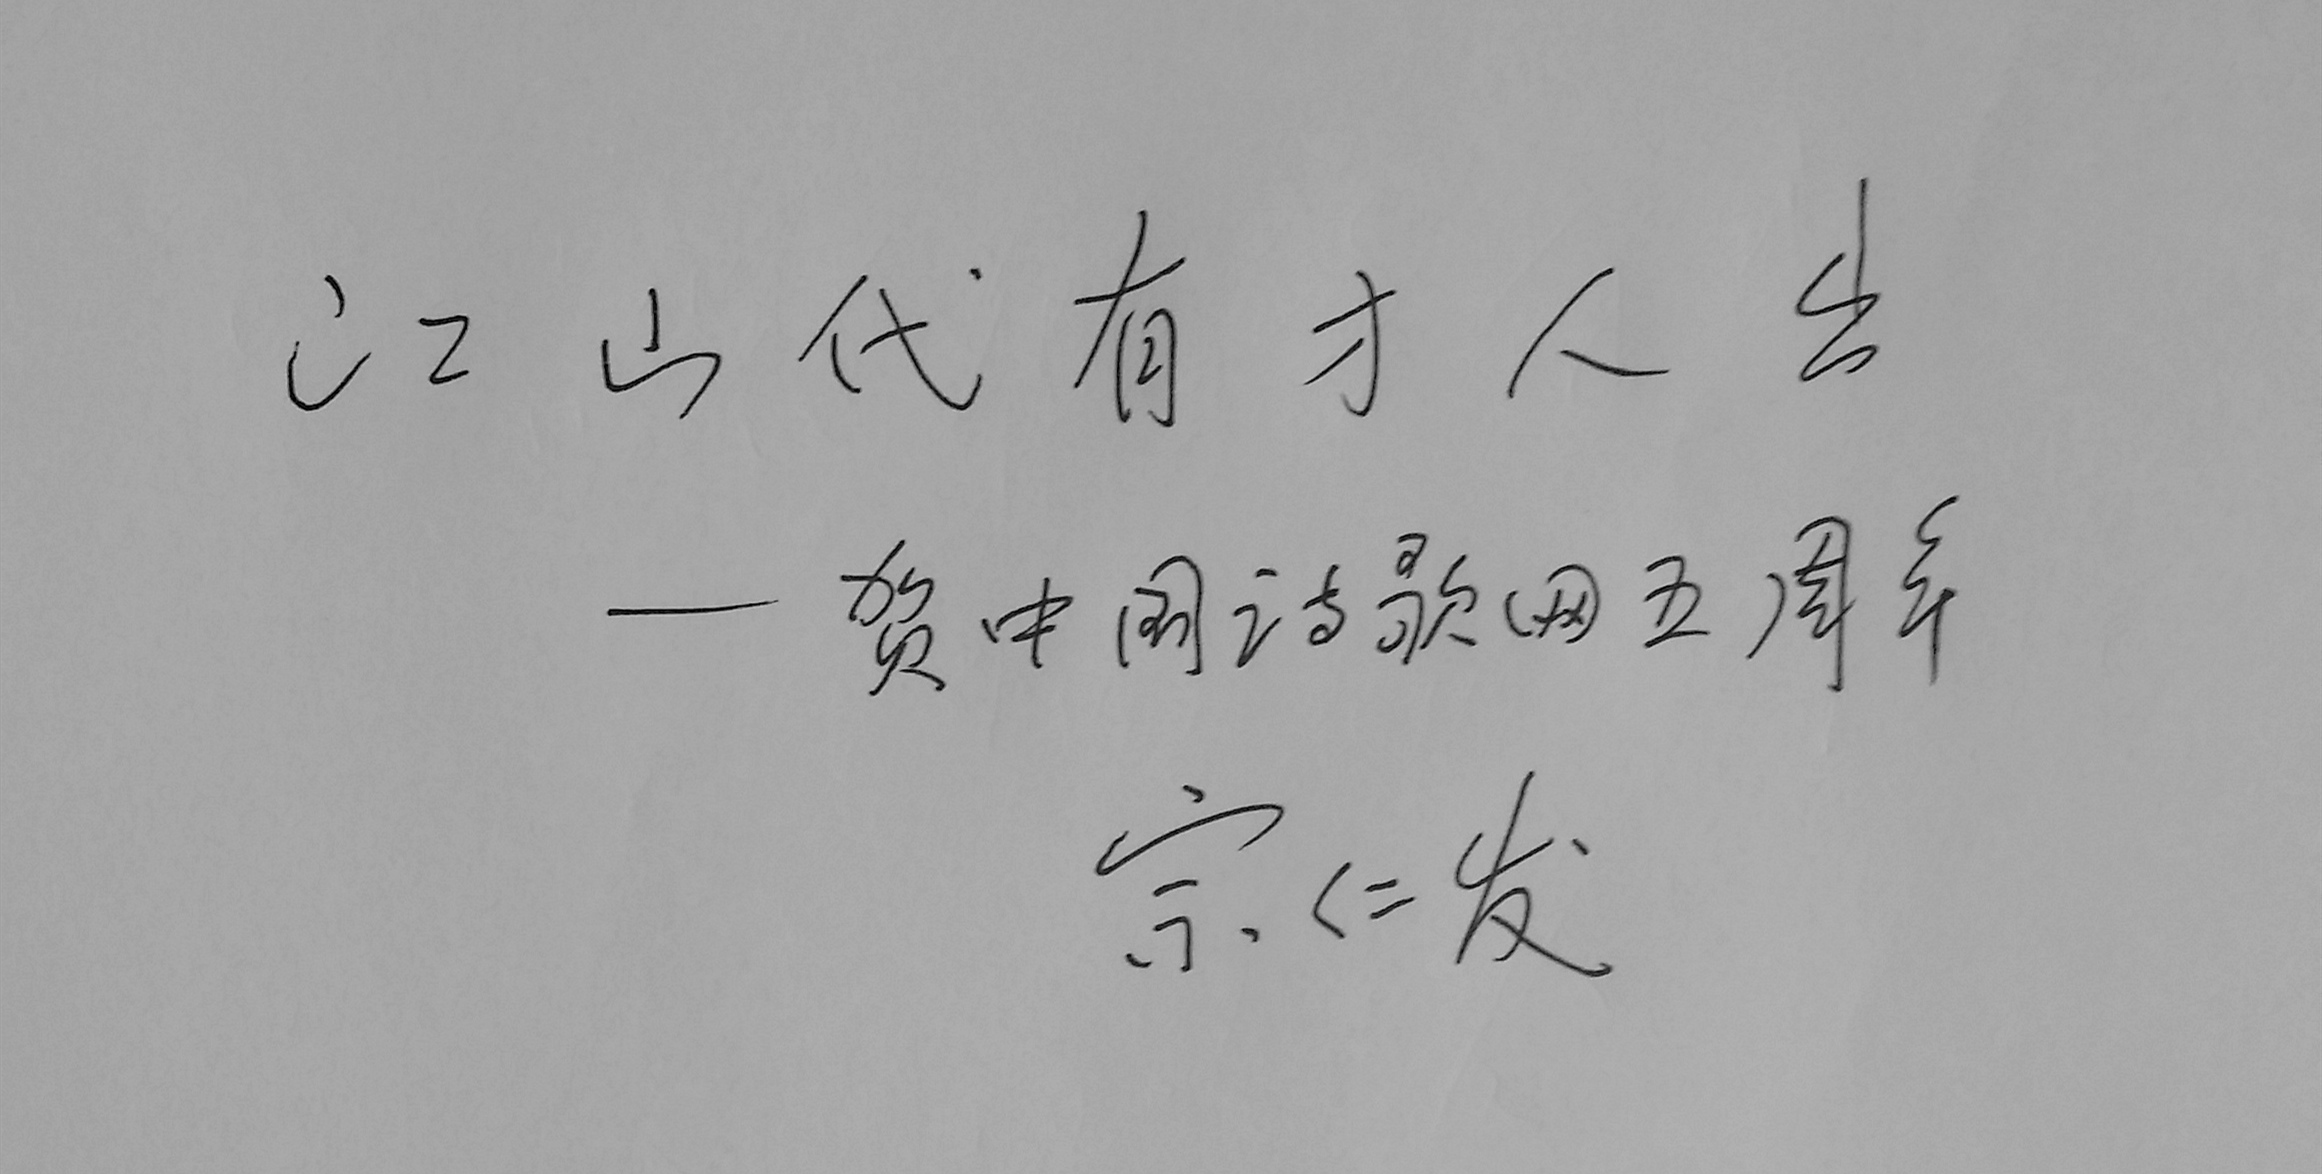 江山代有才人出
—贺中国诗歌网五周年
宗仁发